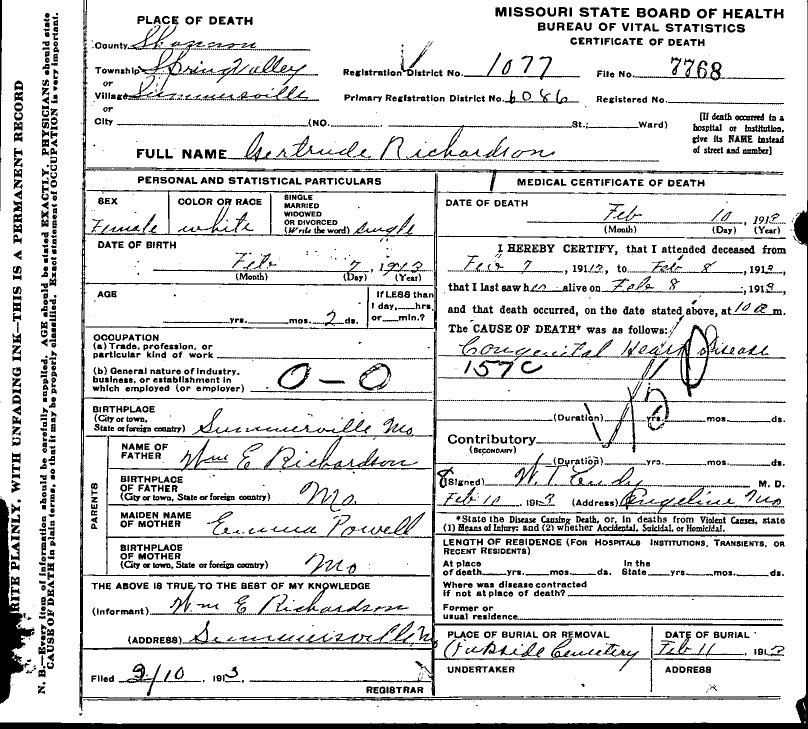 MISSOURI STATE BOARD OF HEALTH
BUREAU OF VITAL STATISTICS
CERTIFICATE OF DEATH
PLACE OF DEATH
County Shannon
Township Spring Valley
or
Village Summersville
or
City (NO. St.; Ward)
Registration District No. 1077 File No. 7768
Primary Registration District No. 6086 Registered No.
[If death occurred in a
hospital or institution,
give its NAME instead
of street and number]
FULL NAME Gertrude Richardson
PERSONAL AND STATISTICAL PARTICULARS
SEX
Female
COLOR OR RACE
white
SINGLE
MARRIED
WIDOWED
OR DIVORCED
(Write the word) single
DATE OF BIRTH
Feb 7, 1913
(Month) (Day) (Year)
AGE
yrs. mos. 2 ds.
If LESS than
1 day, hrs.
or min.?
OCCUPATION
(a) Trade, profession, or
particular kind of work
(b) General nature of industry,
business, or establishment in
which employed (or employer) 0-0
BIRTHPLACE
(City or town,
State or foreign country) Summerville Mo
PARENTS
NAME OF
FATHER Wm E Richardson
BIRTHPLACE
OF FATHER
(City or town, State or foreign country) Mo.
MAIDEN NAME
OF MOTHER Emma Powell
BIRTHPLACE
OF MOTHER
(City or town, State or foreign country) Mo
THE ABOVE IS TRUE TO THE BEST OF MY KNOWLEDGE
(Informant) Wm E Richardson
(ADDRESS) Summersville M
Filed 2/10 1913
REGISTRAR
MEDICAL CERTIFICATE OF DEATH
DATE OF DEATH
Feb 10, 1913
(Month) (Day) (Year)
I HEREBY CERTIFY, that I attended deceased from
Feb 7, 1913, to Feb 8, 1913,
that I last saw her alive on Feb 8, 1913,
and that death occurred, on the date stated above, at 10 a m.
The CAUSE OF DEATH* was as follows:
Congenital Heart Disease
157C
(Duration) yrs. mos. ds.
Contributory
(SECONDARY)
(Duration) yrs. mos. ds.
(Signed) W. T. M. D.
Feb 10 1913 (Address) Angeline Mo
*State the Disease Causing Death, or, in deaths from Violent Causes, state
(1) Means of Injury; and (2) whether Accidental, Suicidal, or Homicidal.
LENGTH OF RESIDENCE (FOR HOSPITALS INSTITUTIONS, TRANSIENTS, OR
RECENT RESIDENTS)
At place
of death yrs. mos. ds.
In the
State yrs. mos. ds.
Where was disease contracted
if not at place of death?
Former or
usual residence
PLACE OF BURIAL OR REMOVAL
Cemetery
DATE OF BURIAL
Feb 11 1913
UNDERTAKER
ADDRESS
RITE PLAINLY, WITH UNFADING INK—THIS IS A PERMANENT RECORD
N. B.—Every item of information should be carefully supplied. AGE should be stated EXACTLY. PHYSICIANS should state
CAUSE OF DEATH in plain terms, so that it may be properly classified. Exact statement of OCCUPATION is very important.